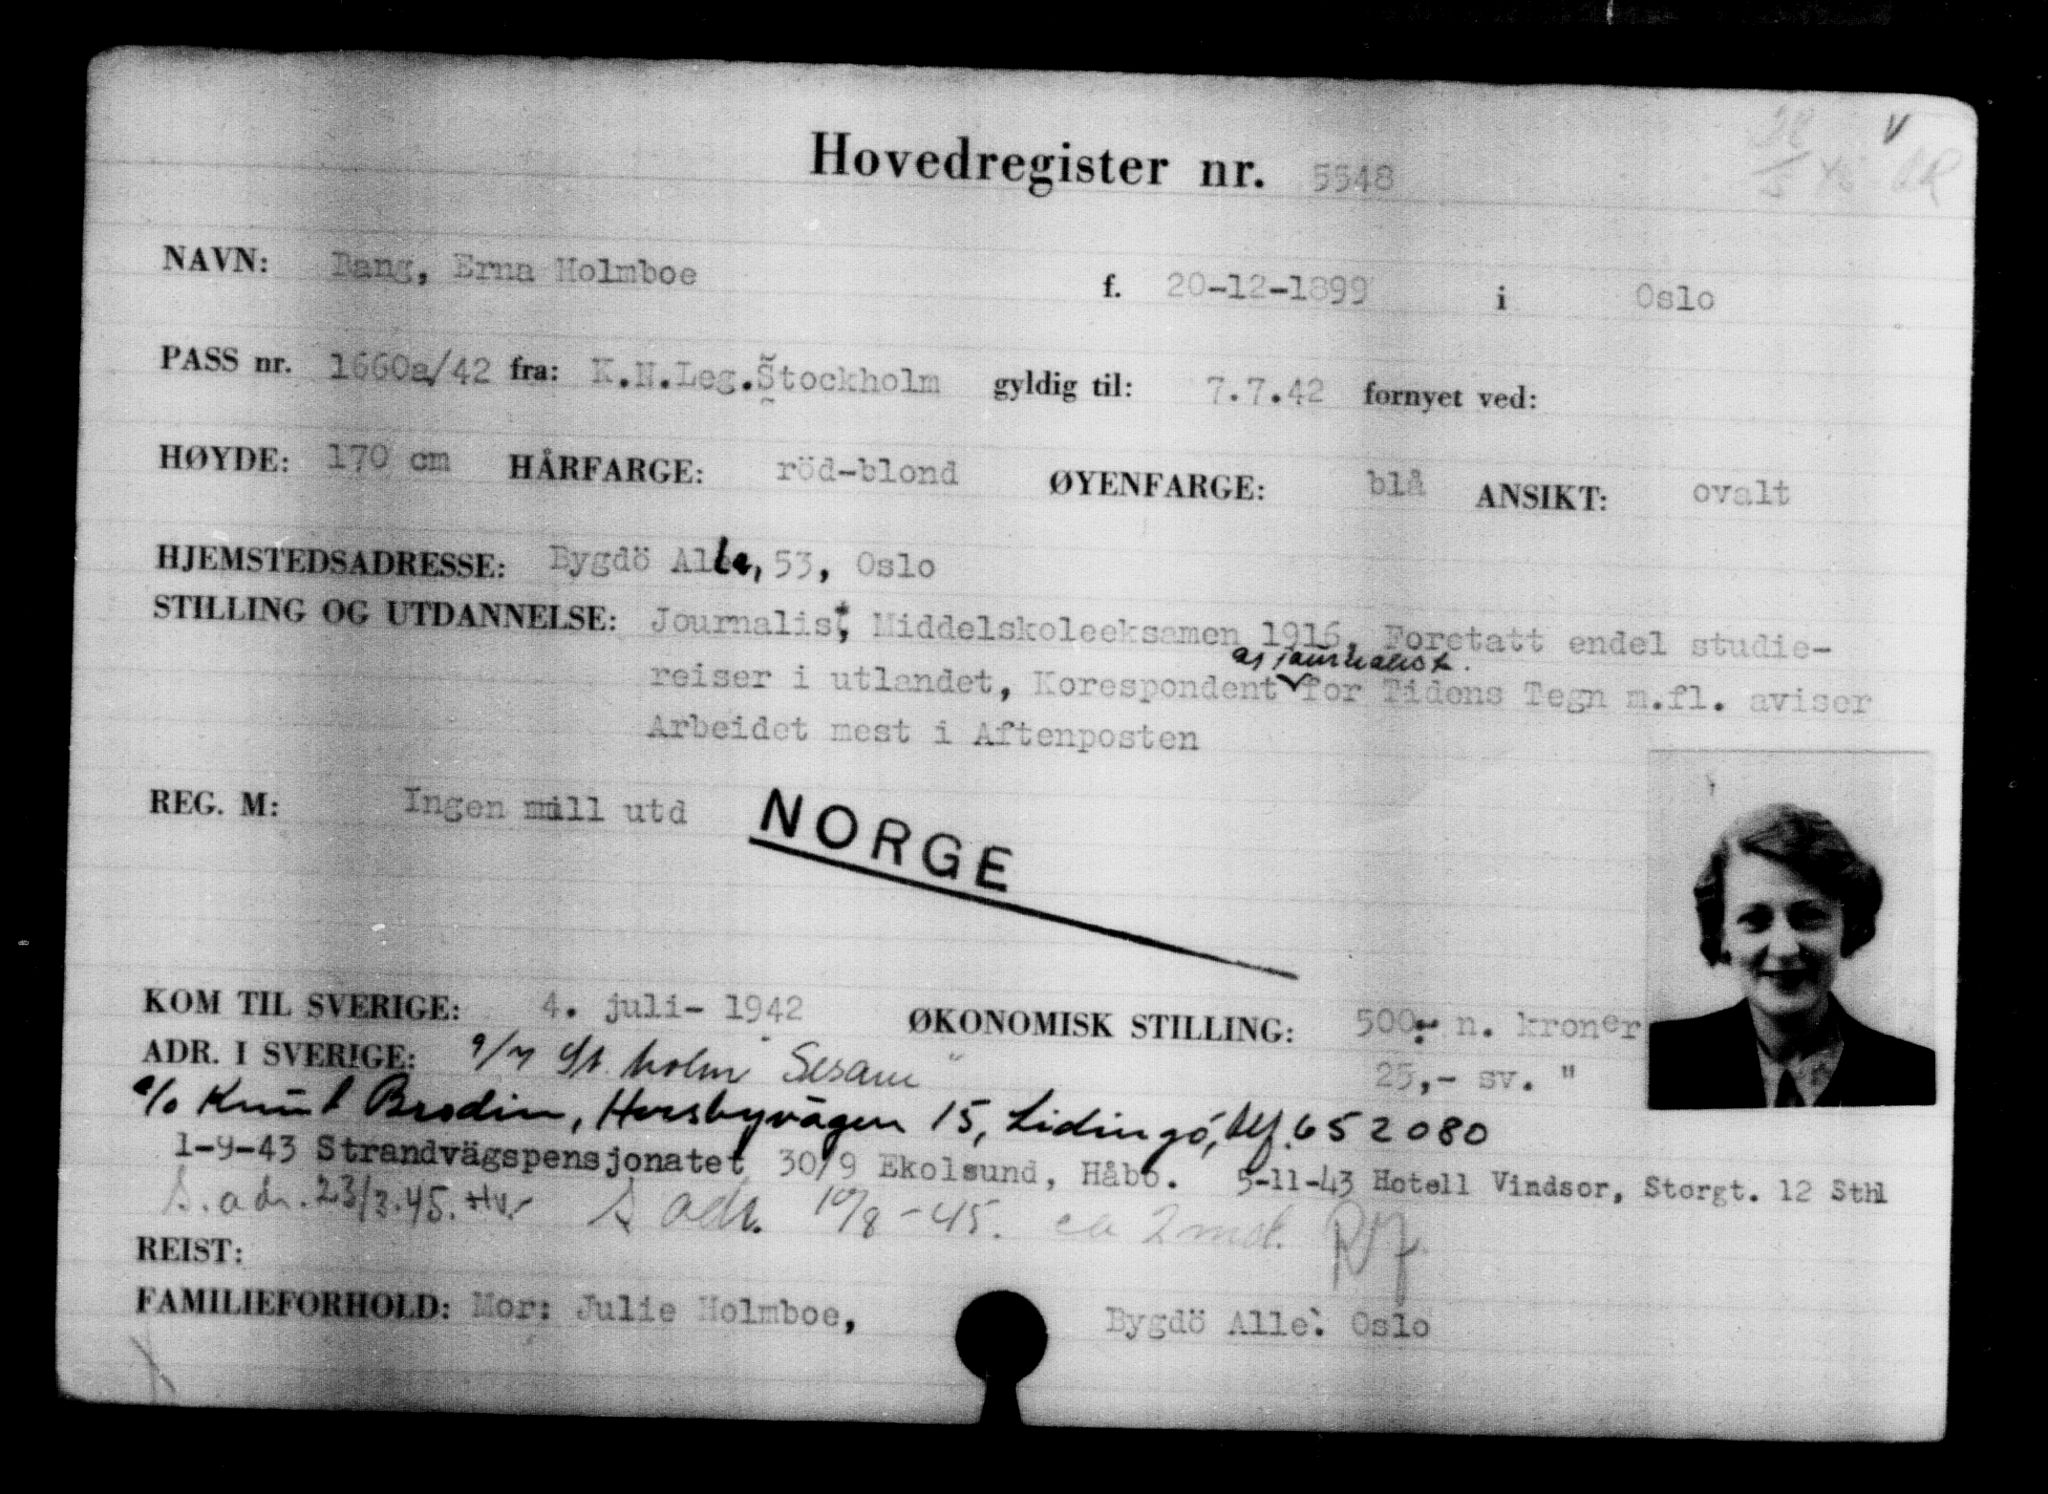 Hovedregister nr. 5548
NAVN: Bang, Erna Holmboe f. 20-12-1899 i Oslo
PASS nr. 1660a/42 fra: K.N.Leg.Stockholm gyldig til: 7.7.42 fornyet ved:
HØYDE: 170 cm HÅRFARGE: röd-blond ØYENFARGE: blå ANSIKT: ovalt
HJEMSTEDSADRESSE: Bygdö Alle, 53, Oslo
STILLING OG UTDANNELSE: Journalist, Middelskoleeksamen 1916. Foretatt endel studie-
og journalist.
reiser i utlandet, Korespondent for Tidens Tegn m.fl. aviser
Arbeidet mest i Aftenposten
REG. M: Ingen mill utd
NORGE
KOM TIL SVERIGE: 4. juli- 1942 ØKONOMISK STILLING: 500,- n. kroner
ADR. I SVERIGE: 9/7 St. holm "Sesam" 25,- sv. "
c/o Knut Brodin, Hersbyvägen 15, Lidingö, tlf. 652080
1-9-43 Strandvägspensjonatet 30/9 Ekolsund, Håbo. 5-11-43 Hotell Vindsor, Storgt. 12 Sthl
S. adr. 23/3.45. S adr. 10/8-45. ca 2 md.
REIST:
FAMILIEFORHOLD: Mor: Julie Holmboe, Bygdö Alle. Oslo